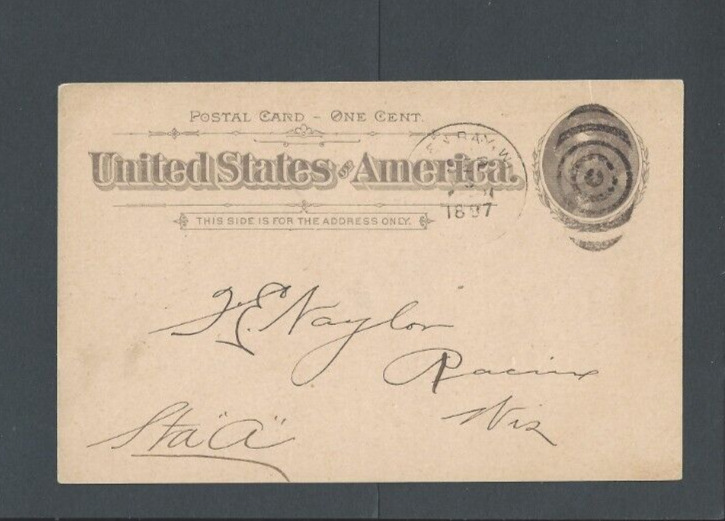 POSTAL CARD - ONE CENT.
United States of America.
THIS SIDE IS FOR THE ADDRESS ONLY.
BAY, W
1897
J. E. Naylor
Racine
Wis
Sta "A"